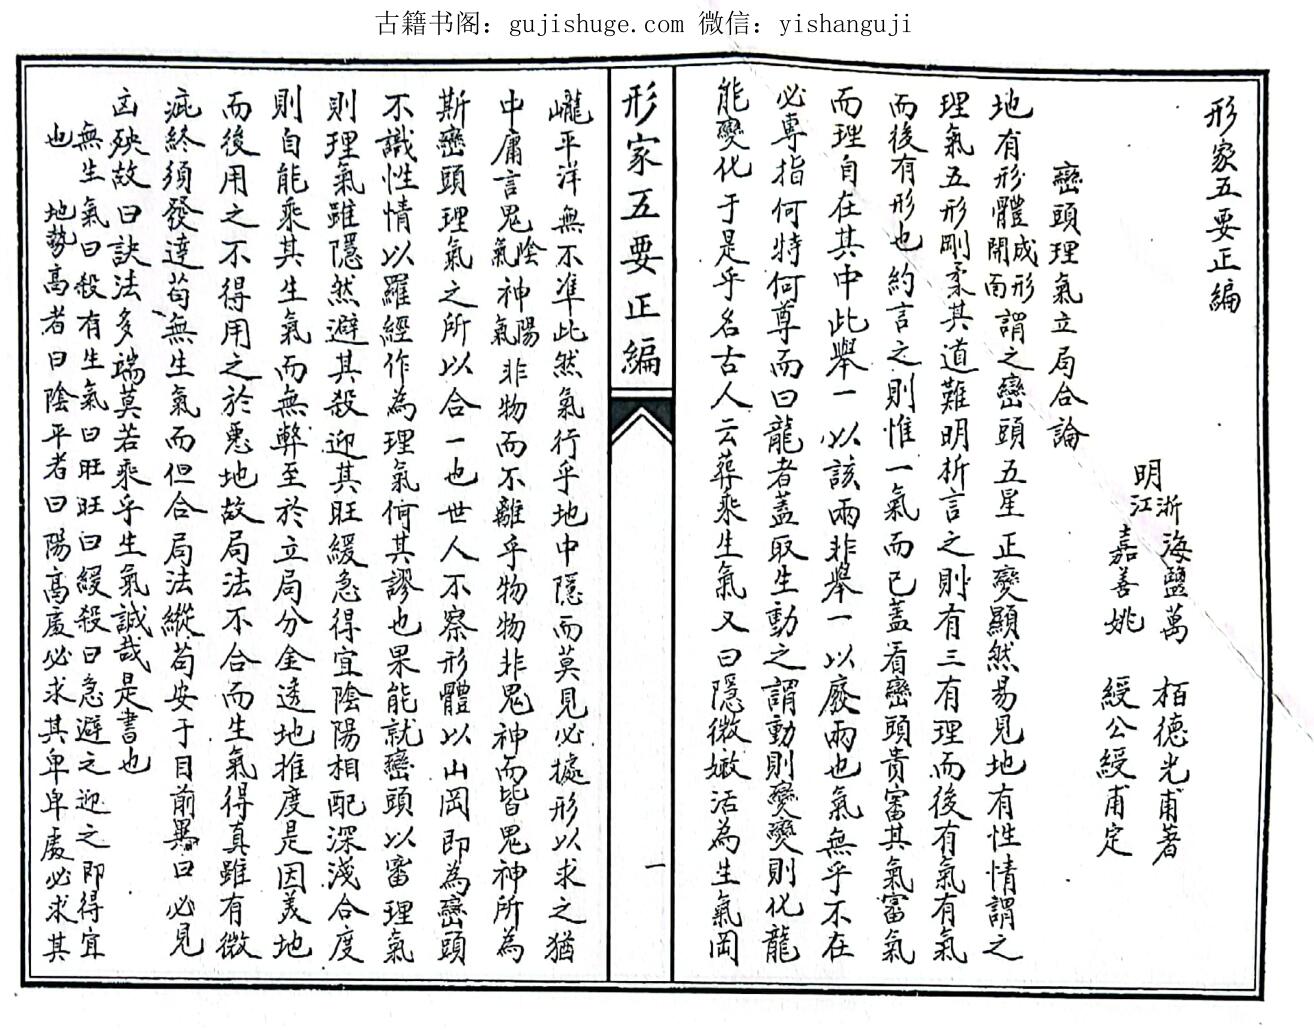 古籍书阁：gujishuge.com 微信：yishanguji
形家五要正編
明浙江海鹽萬 栢德光甫著
嘉善姚 綬公綬甫定
巒頭理氣立局合論
地有形體成形開面謂之巒頭五星正變顯然易見地有性情謂之
理氣五形剛柔其道難明析言之則有三有理而後有氣有氣
而後有形也約言之則惟一氣而已蓋看巒頭貴審其氣審氣
而理自在其中此舉一以該兩非舉一以廢兩也氣無乎不在
必專指何特何尊而曰龍者蓋取生動之謂動則變變則化龍
能變化于是乎名古人云葬乘生氣又曰隱微嫩活為生氣岡
形家五要正編
一
巄平洋無不準此然氣行乎地中隱而莫見必據形以求之猶
中庸言鬼陰氣神陽氣非物而不離乎物物非鬼神而皆鬼神所為
斯巒頭理氣之所以合一也世人不察形體以山岡即為巒頭
不識性情以羅經作為理氣何其謬也果能就巒頭以審理氣
則理氣雖隱然避其殺迎其旺緩急得宜陰陽相配深淺合度
則自能乘其生氣而無弊至於立局分金透地推度是因美地
而後用之不得用之於惡地故局法不合而生氣得真雖有微
疵終須發達苟無生氣而但合局法縱苟安于目前畢曰必見
凶殃故曰訣法多端莫若乘乎生氣誠哉是書也
無生氣曰殺有生氣曰旺旺曰緩殺曰急避之迎之即得宜
也 地勢高者曰陰平者曰陽高處必求其卑卑處必求其